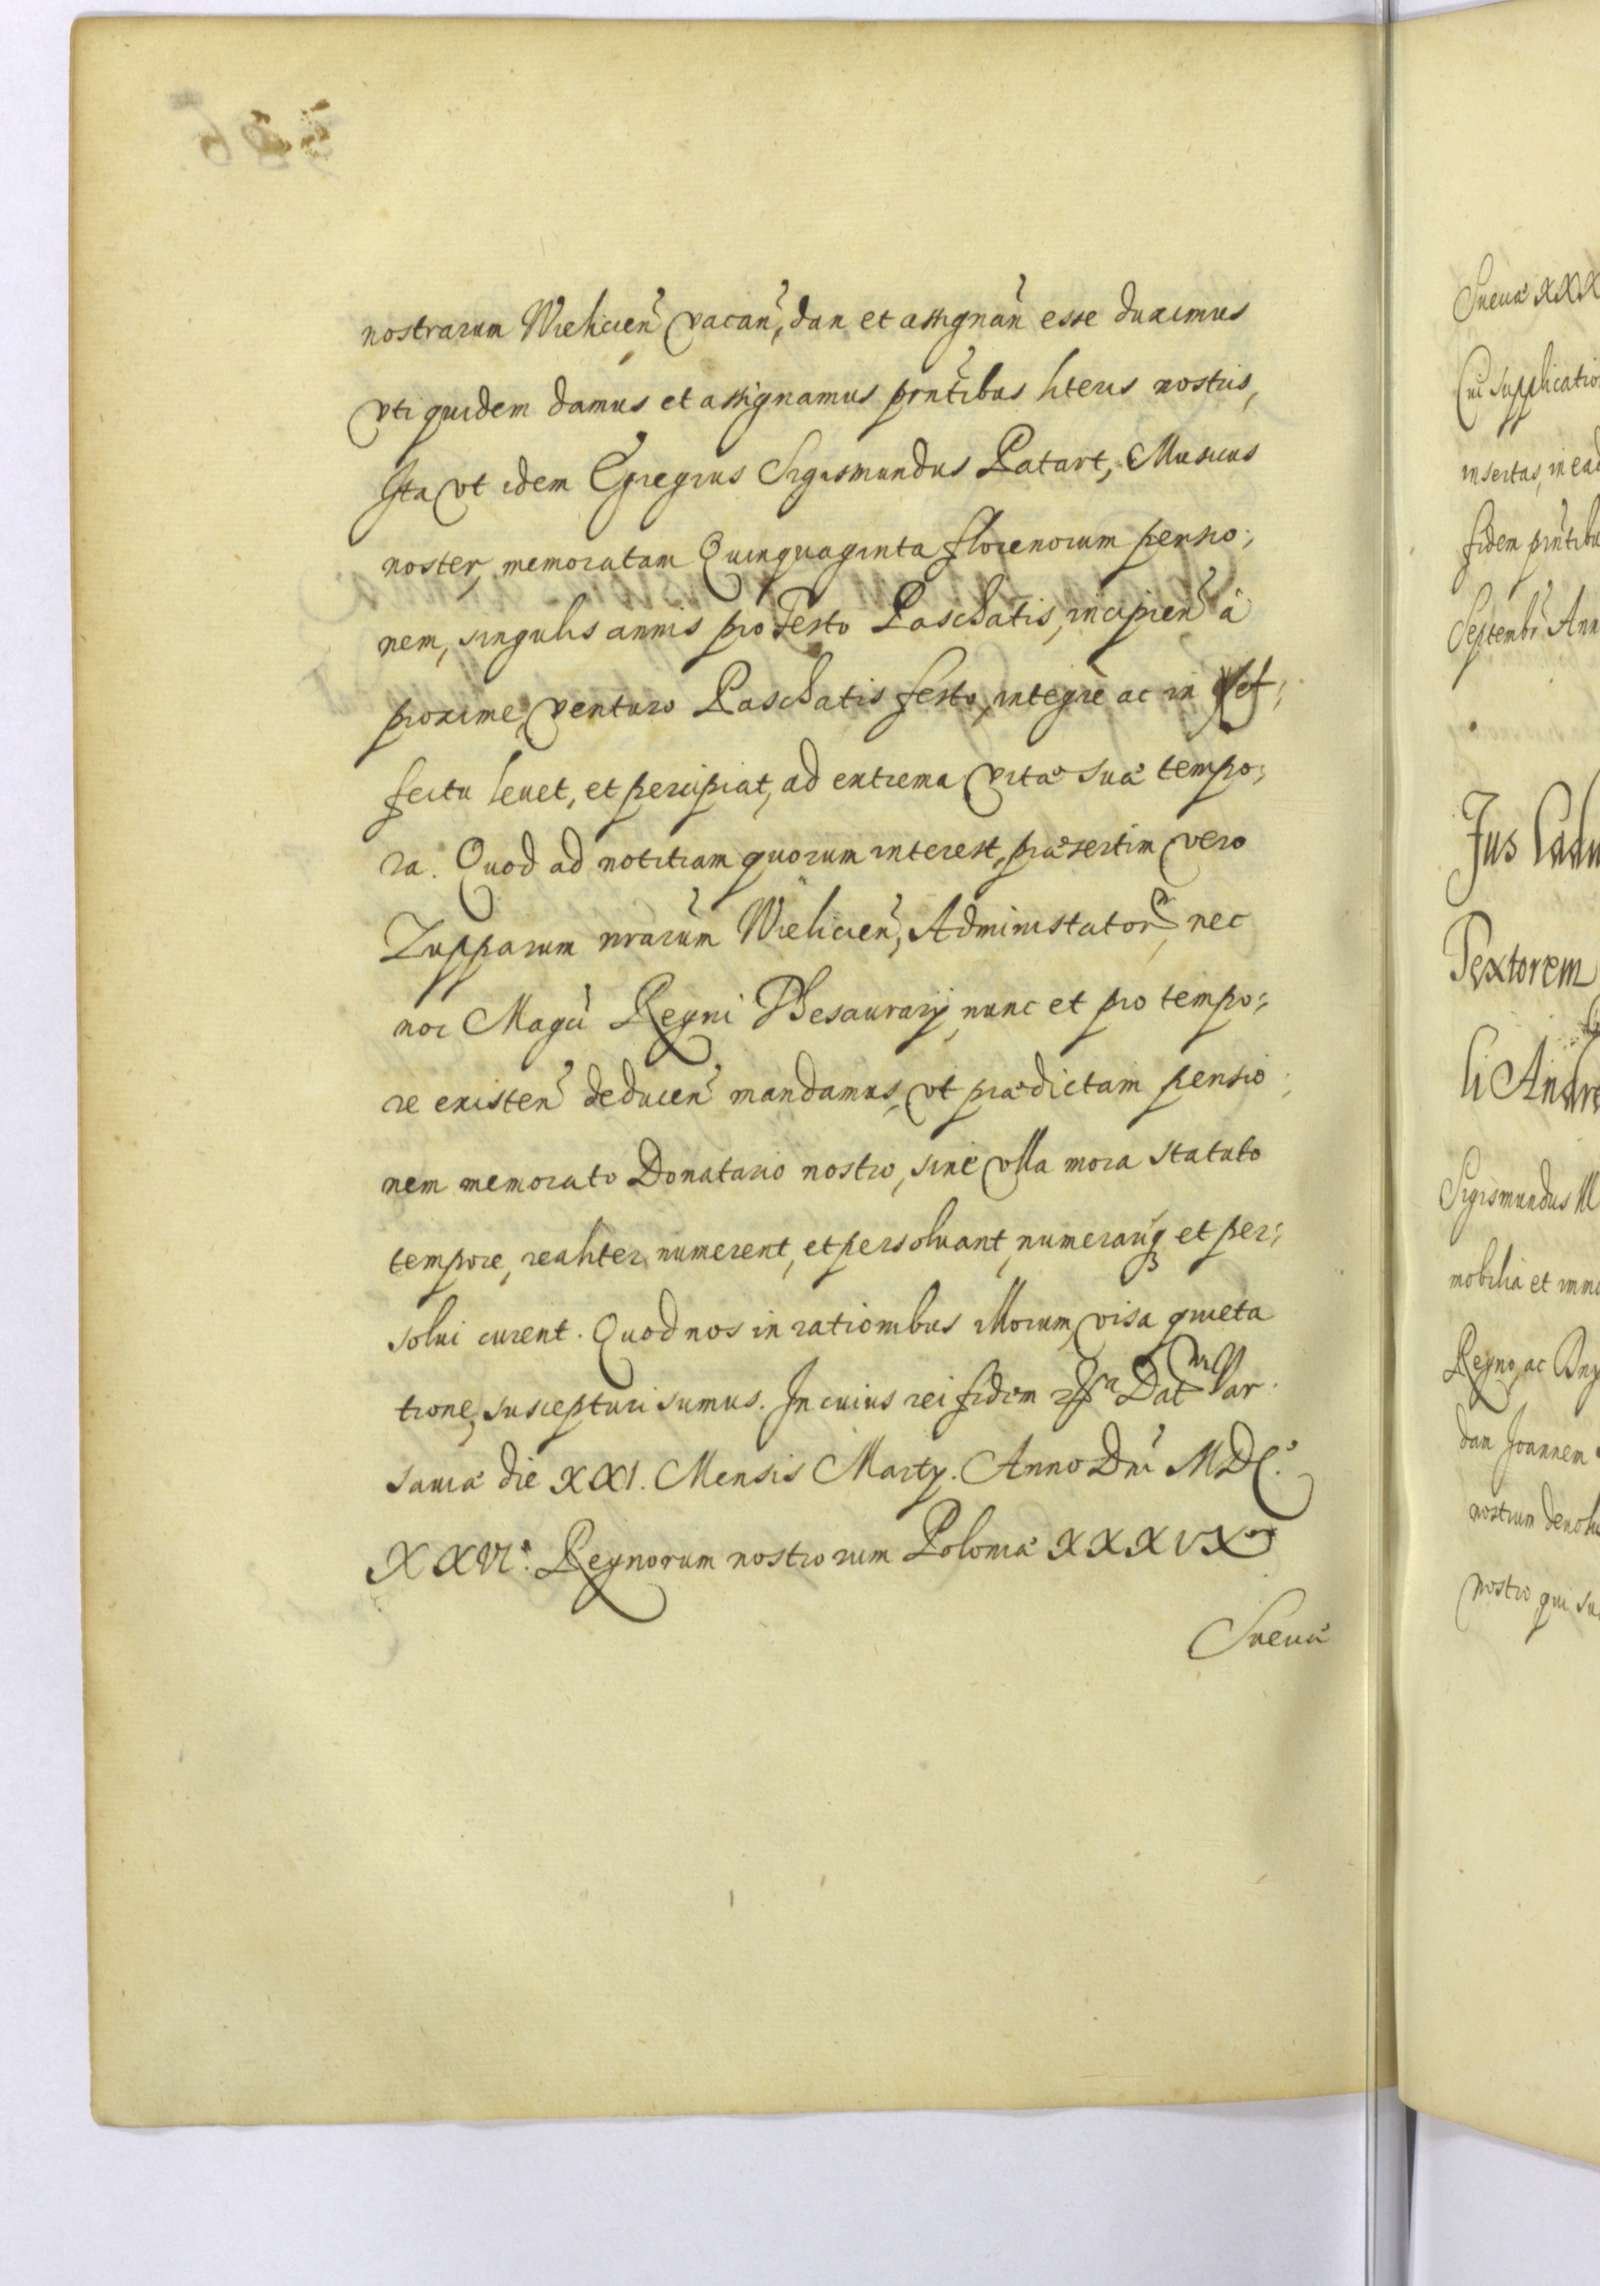 nostrarum Wielicien vacan, dan et assignan esse duximus
vti quidem damus et assignamus pntibus literis nostris,
Ita vt idem Egregius Sigismundus Patart, Musicus
noster, memoratam Quinquaginta florenorum pensio:
nem, singulis annis pro Festo Paschatis, incipien à
proxime venturo Paschatis festo, integre ac in
fectu leuet, et percipiat, ad extrema vitæ suæ tempo:
ra. Quod ad notitiam quorum interest, præsertim vero
Zupparum nrarum Wielicien, Administator, nec
non Magci Regni Thesaurarij nunc et pro tempo:
re existen deducen mandamus, vt prædictam pensio:
nem memorato Donatario nostro, sine vlla mora statuto
tempore, realiter numerent, et persoluant, numeranq et per:
solui curent. Quod nos in rationibus illorum, visa quieta
tione, suscepturi sumus. In cuius rei fidem Dat Var
sauiæ die XXI. Mensis Martij. Anno Dni MDC.
XXVI. Regnorum nostrorum Poloniæ XXXIX
Sueuæ
Sueuæ XXX
Cui supplicatio
insertas, in ead
fidem pntibu
Septembr Ann
Jus Cadu
Textorem
li Andre
Sigismundus
mobilia et immo
Regno, ac
dam Joannem
nostrum deuolu
nostro qui su